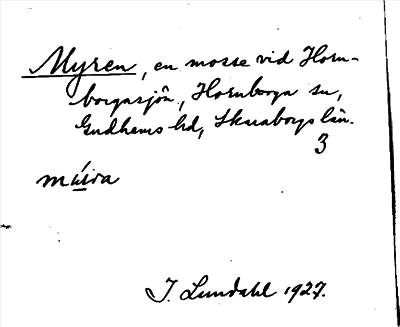 Myren, en mosse vid Horn-
borgasjön, Hornborga sn,
Gudhems hd, Skaraborgs län.
3
I. Lundahl 1927.